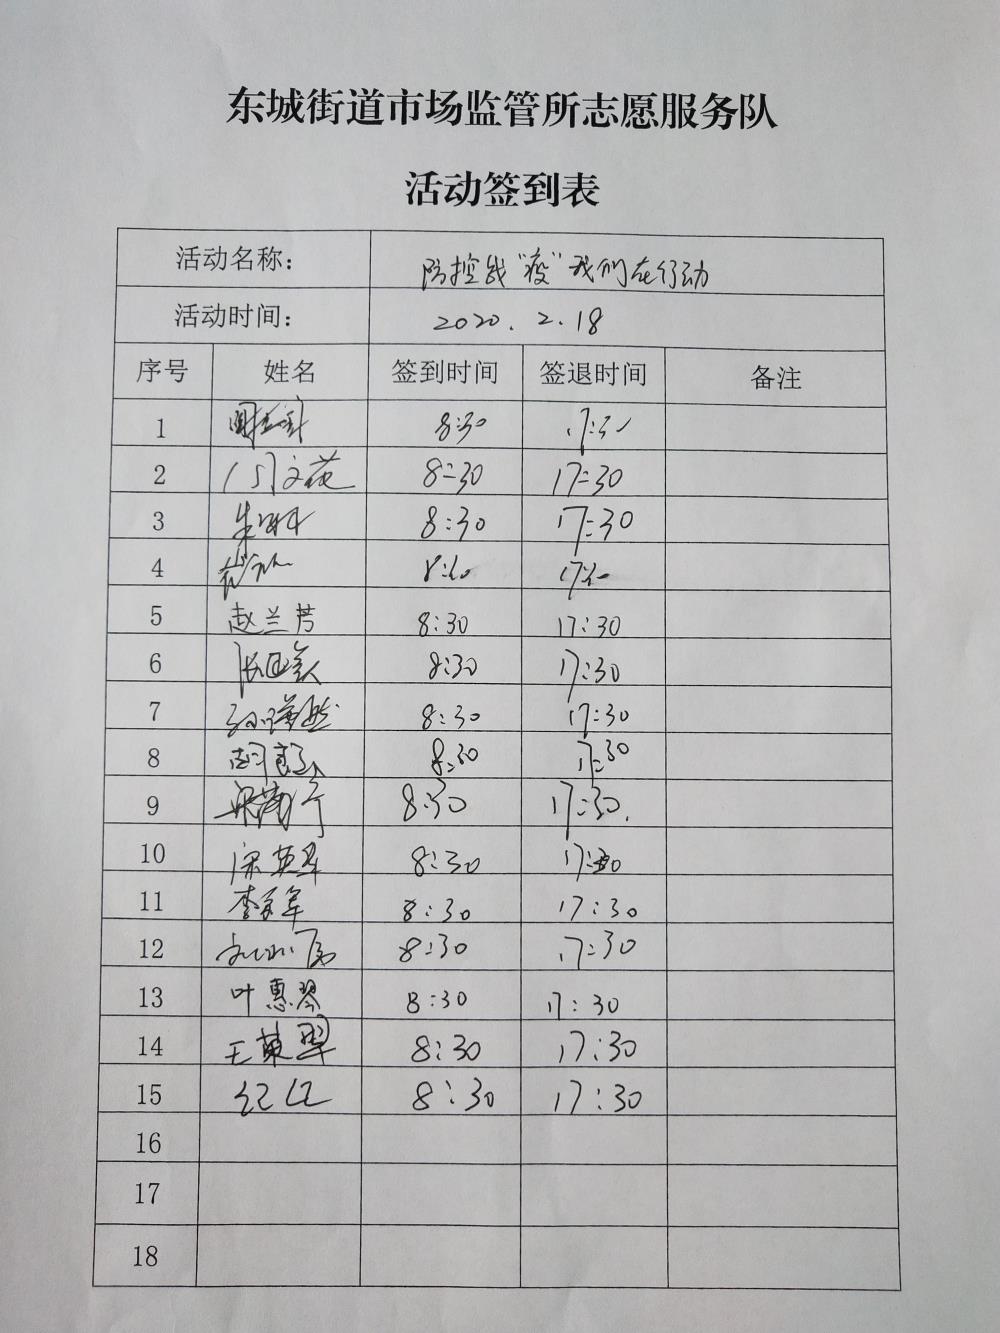 东城街道市场监管所志愿服务队
活动签到表
活动名称： 防控战“疫”我们在行动
活动时间： 2020.2.18
序号 姓名 签到时间 签退时间 备注
1 8:30 17:30
2 闫文花 8:30 17:30
3 8:30 17:30
4 8:30 17:30
5 赵兰芳 8:30 17:30
6 8:30 17:30
7 8:30 17:30
8 8:30 17:30
9 8:30 17:30
10 宋英翠 8:30 17:30
11 李军 8:30 17:30
12 8:30 17:30
13 叶惠琴 8:30 17:30
14 王菓翠 8:30 17:30
15 纪红 8:30 17:30
16
17
18